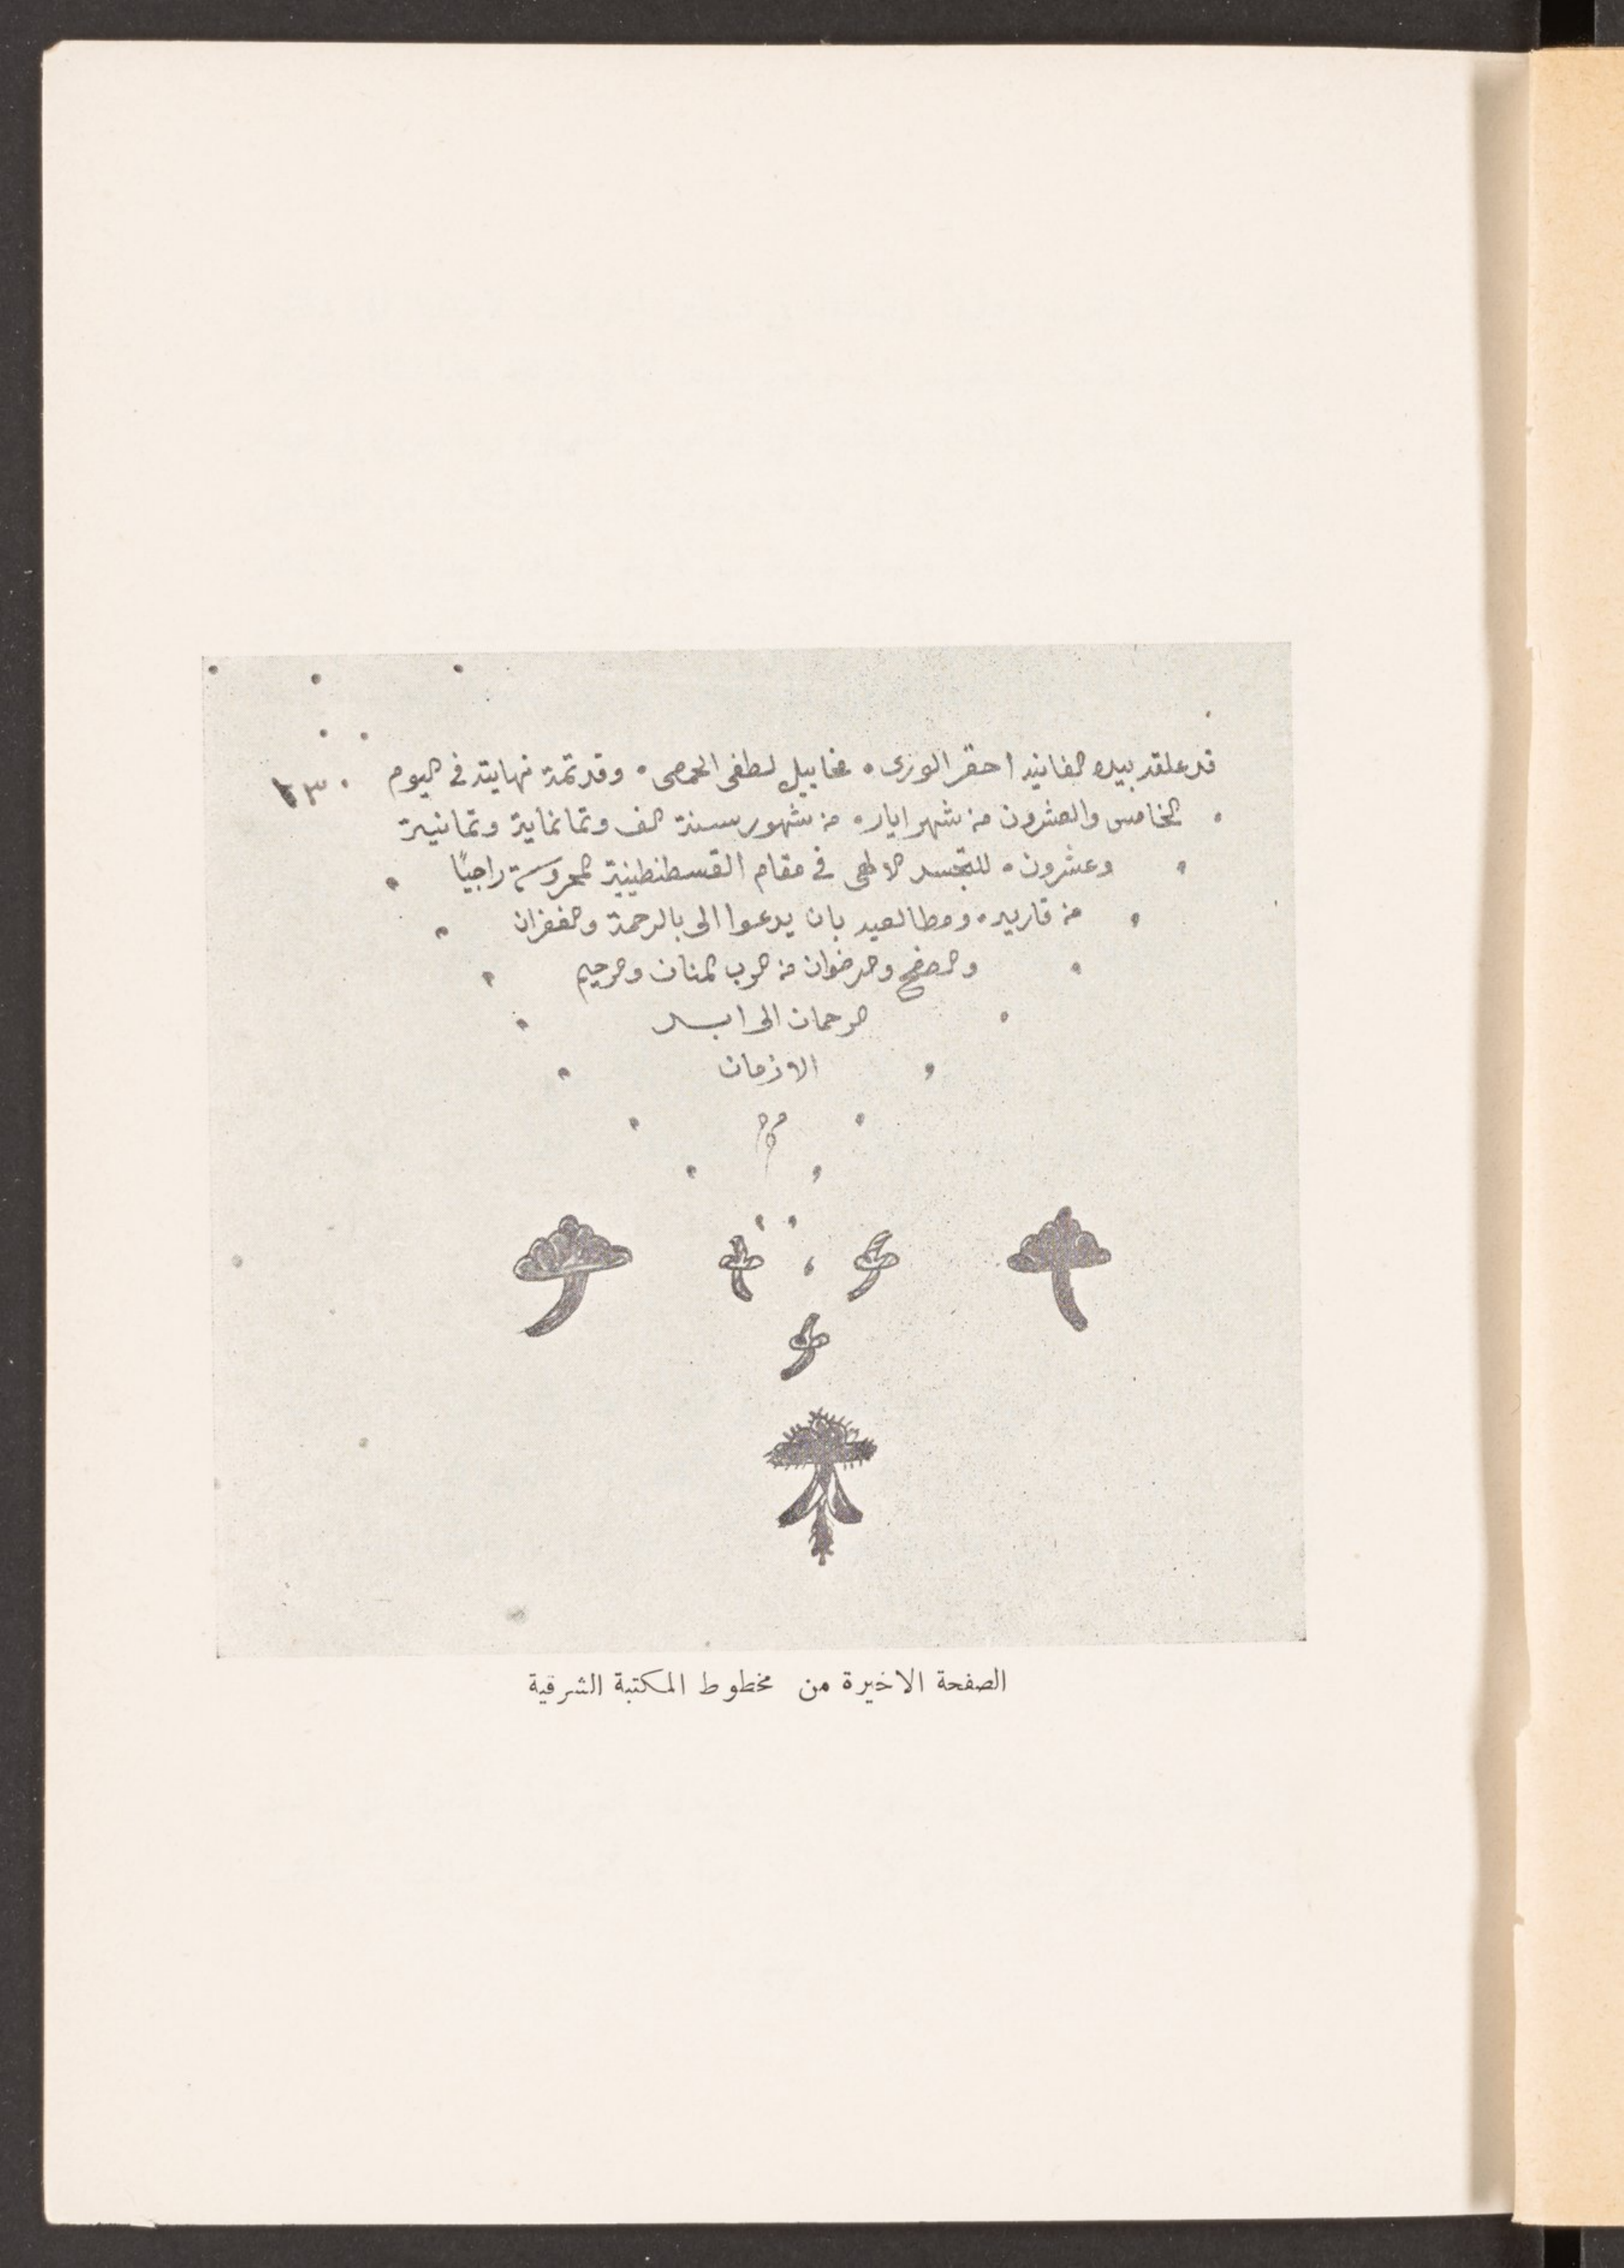 قد علقه بيده الفانيه احقر الورى ٠ مخاييل لطفى الحمصى ٠ وقد تمة نهايته في اليوم
الخامس والعشرون من شهر ايار ٠ من شهور سنة الف وثمانماية وثمانية
وعشرون ٠ للتجسد الالهى في مقام القسطنطينية المحروسة راجيًا
من قاريه ٠ ومطالعيه بان يدعوا الى بالرحمة والغفران
والصفح والرضوان من الرب المنان والرحيم
الرحمان الى ابد
الازمان
الصفحة الاخيرة من مخطوط المكتبة الشرقية